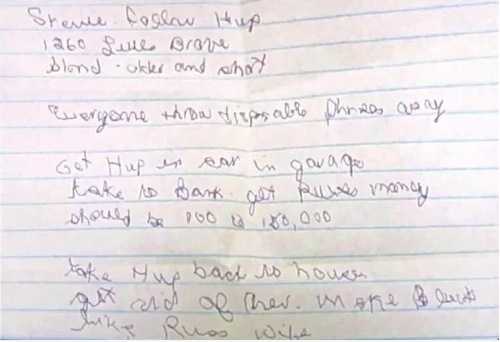 follow Hup
1260
blond - older and short
Everyone throw disposable phones away
Get Hup in car in garage
take to bank. get Russ money
should be 100 to 150,000
take Hup back to house
get rid of her. make
like Russ wife